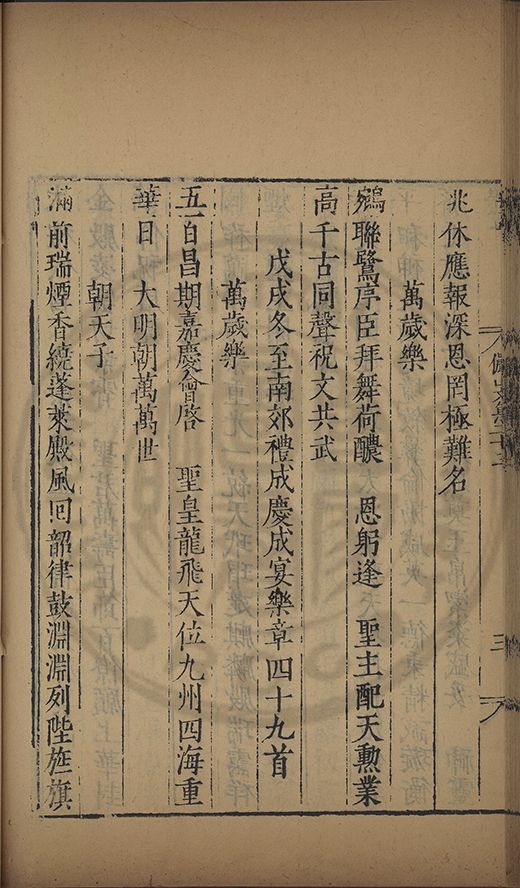 兆休應報深恩罔極難名
萬歲樂
鵷聯鷺序臣拜舞荷醲 恩躬逢 聖主配天勲業
高千古同聲祝文共武
戊戌冬至南郊禮成慶成宴樂章四十九首
萬歲樂
五百昌期嘉慶會啓 聖皇龍飛天位九州四海重
華日 大明朝萬萬世
朝天子
滿前瑞煙香繞蓬萊殿風回韶律鼓淵淵列陛旌旗
三